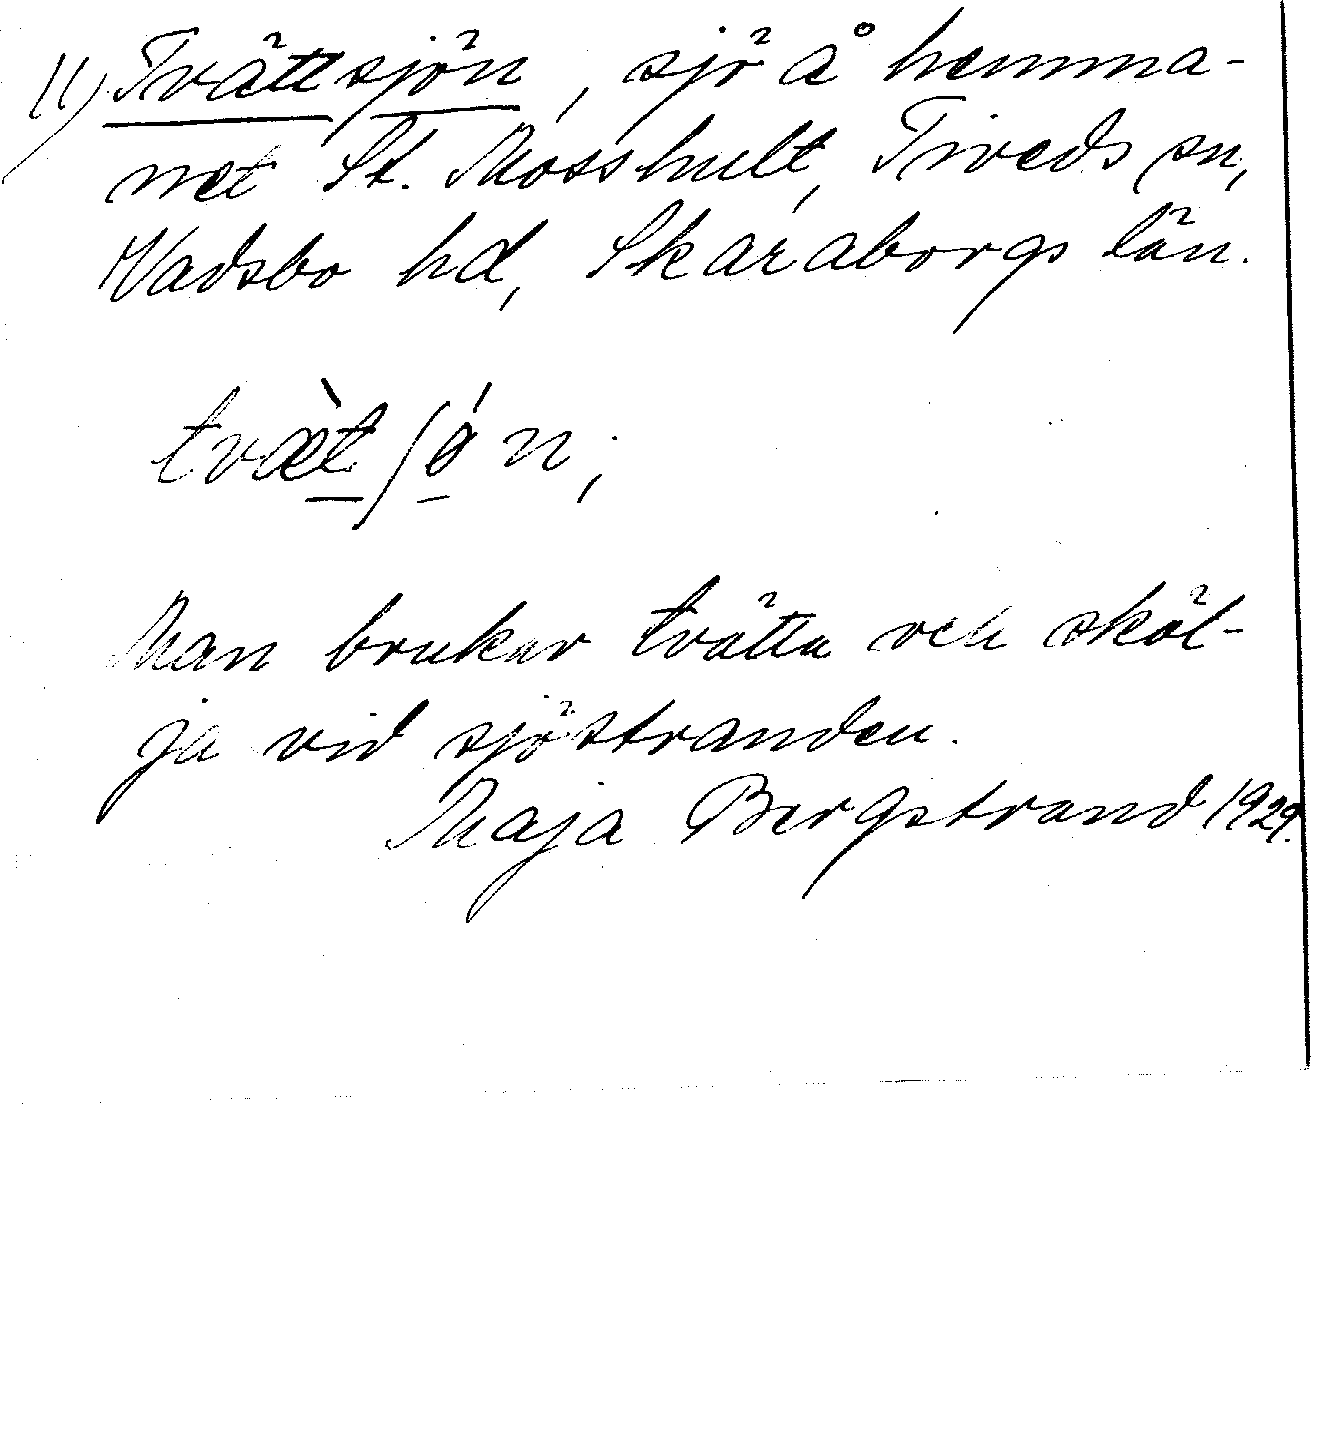 11) Tvättsjön, sjö å hemma-
net St. Mosshult, Tiveds sn,
Vadsbo hd, Skaraborgs län.
tvæ̀tʃǿn;
Man brukar tvätta och sköl-
ja vid sjöstranden.
Maja Bergstrand 1929.